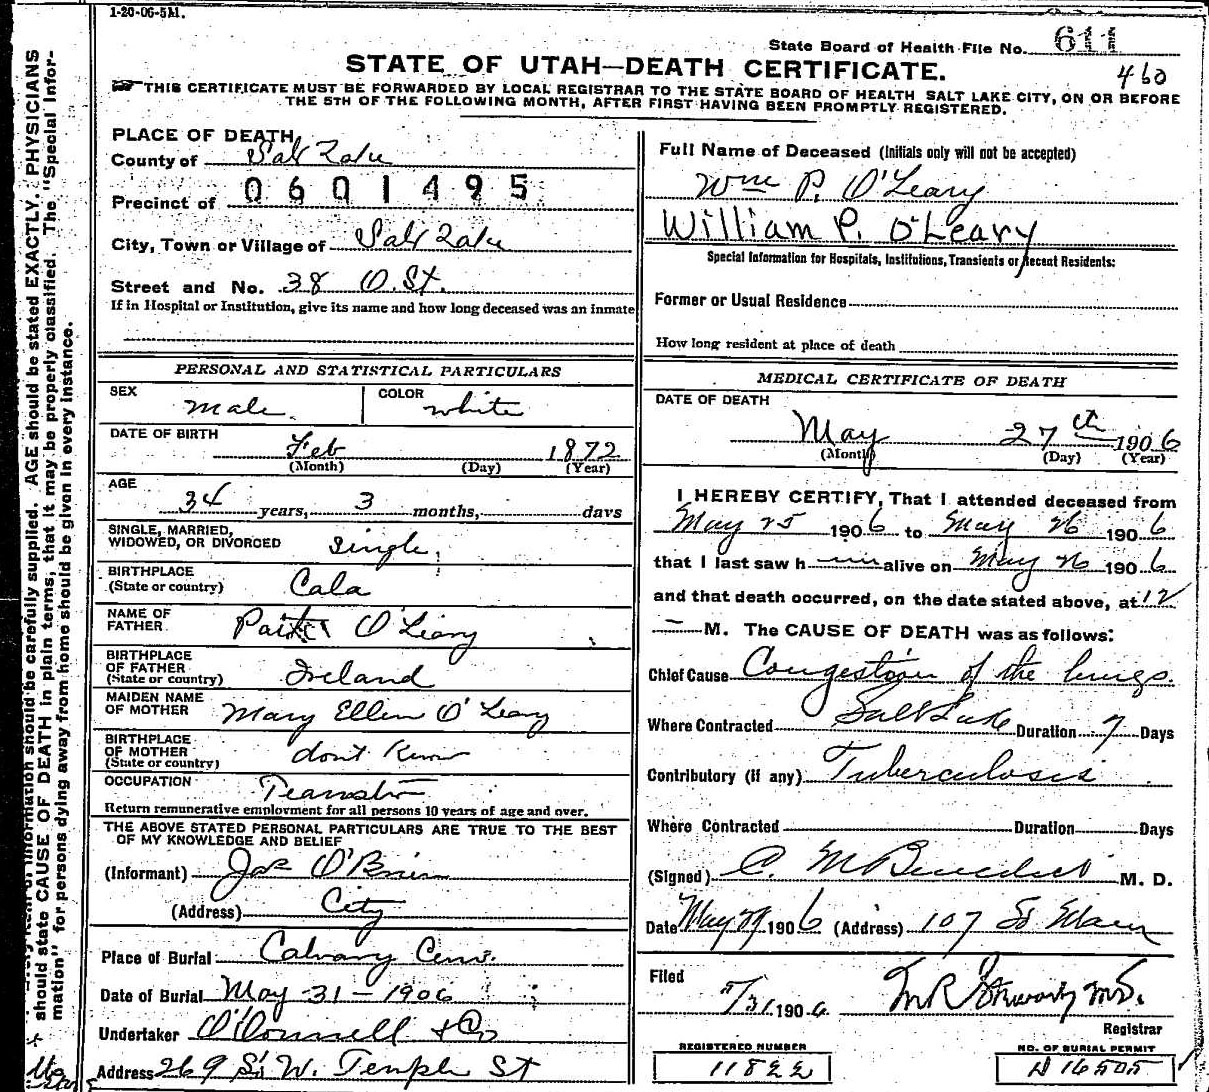 1-20-06-5M.
State Board of Health File No. 611
460
STATE OF UTAH—DEATH CERTIFICATE.
THIS CERTIFICATE MUST BE FORWARDED BY LOCAL REGISTRAR TO THE STATE BOARD OF HEALTH SALT LAKE CITY, ON OR BEFORE
THE 5TH OF THE FOLLOWING MONTH, AFTER FIRST HAVING BEEN PROMPTLY REGISTERED.
PLACE OF DEATH
County of Salt Lake
Precinct of 0601495
City, Town or Village of Salt Lake
Street and No. 38 O. St.
If in Hospital or Institution, give its name and how long deceased was an inmate
PERSONAL AND STATISTICAL PARTICULARS
SEX male. COLOR white
DATE OF BIRTH Feb 1872
(Month) (Day) (Year)
AGE
34 years, 3 months, days
SINGLE, MARRIED,
WIDOWED, OR DIVORCED single
BIRTHPLACE
(State or country) Cala
NAME OF
FATHER O'Leary
BIRTHPLACE
OF FATHER
(State or country) Ireland
MAIDEN NAME
OF MOTHER Mary Ellen O'Leary
BIRTHPLACE
OF MOTHER
(State or country) don't Know
OCCUPATION Teamster
Return remunerative employment for all persons 10 years of age and over.
THE ABOVE STATED PERSONAL PARTICULARS ARE TRUE TO THE BEST
OF MY KNOWLEDGE AND BELIEF
(Informant) Jas O'Brien
(Address) City
Place of Burial Calvary Cem.
Date of Burial May 31-1906
Undertaker O'Donnell & Co
Address 269 So W. Temple St
Full Name of Deceased (Initials only will not be accepted)
Wm P. O'Leary
William P. O'Leary
Special Information for Hospitals, Institutions, Transients or Recent Residents:
Former or Usual Residence
How long resident at place of death
MEDICAL CERTIFICATE OF DEATH
DATE OF DEATH
May 27th 1906
(Month) (Day) (Year)
I HEREBY CERTIFY, That I attended deceased from
May 25 1906 to May 26 1906
that I last saw h im alive on May 26 1906
and that death occurred, on the date stated above, at 12
M. The CAUSE OF DEATH was as follows:
Chief Cause Congestion of the lungs.
Where Contracted Salt Lake Duration 7 Days
Contributory (if any) Tuberculosis
Where Contracted Duration Days
(Signed) C. M Benedict M. D.
Date May 29 1906 (Address) 107 So Main
Filed
5/31 1906
Registrar
REGISTERED NUMBER
11822
NO. OF BURIAL PERMIT
16505
information should be carefully supplied. AGE should be stated EXACTLY. PHYSICIANS
should state CAUSE OF DEATH in plain terms, that it may be properly classified. The "Special Infor-
mation" for persons dying away from home should be given in every instance.